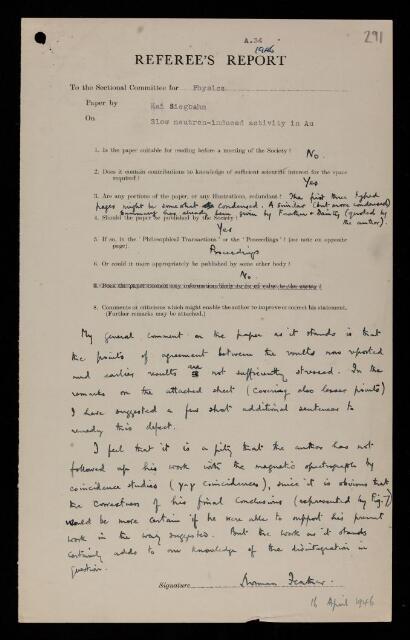 291
A.34
1946
REFEREE'S REPORT
To the Sectional Committee for Physics
Paper by Kai Siegbahn
On Slow neutron-induced activity in Au
1. Is the paper suitable for reading before a meeting of the Society?
No.
2. Does it contain contributions to knowledge of sufficient scientific interest for the space
required?
Yes
3. Are any portions of the paper, or any illustrations, redundant? The first three typed
pages might be somewhat condensed. A similar (but more condensed)
summary has already been given by Feather & Dainty (quoted by
the author).
4. Should the paper be published by the Society?
Yes
5. If so, in the "Philosophical Transactions" or the "Proceedings"? (see note on opposite
page).
Proceedings
6. Or could it more appropriately be published by some other body?
No.
8. Comments or criticisms which might enable the author to improve or correct his statement.
(Further remarks may be attached.)
My general comment on the paper as it stands is that
the points of agreement between the results now reported
and earlier results are not sufficiently stressed. In the
remarks on the attached sheet (covering also lesser points)
I have suggested a few short additional sentences to
remedy this defect.
I feel that it is a pity that the author has not
followed up his work with the magnetic spectrograph by
coincidence studies (γ-γ coincidences), since it is obvious that
the correctness of his final conclusions (represented by Fig. 7)
would be more certain if he were able to support his present
work in the way suggested. But the work as it stands
certainly adds to our knowledge of the disintegration in
question.
Signature Norman Feather.
16 April 1946